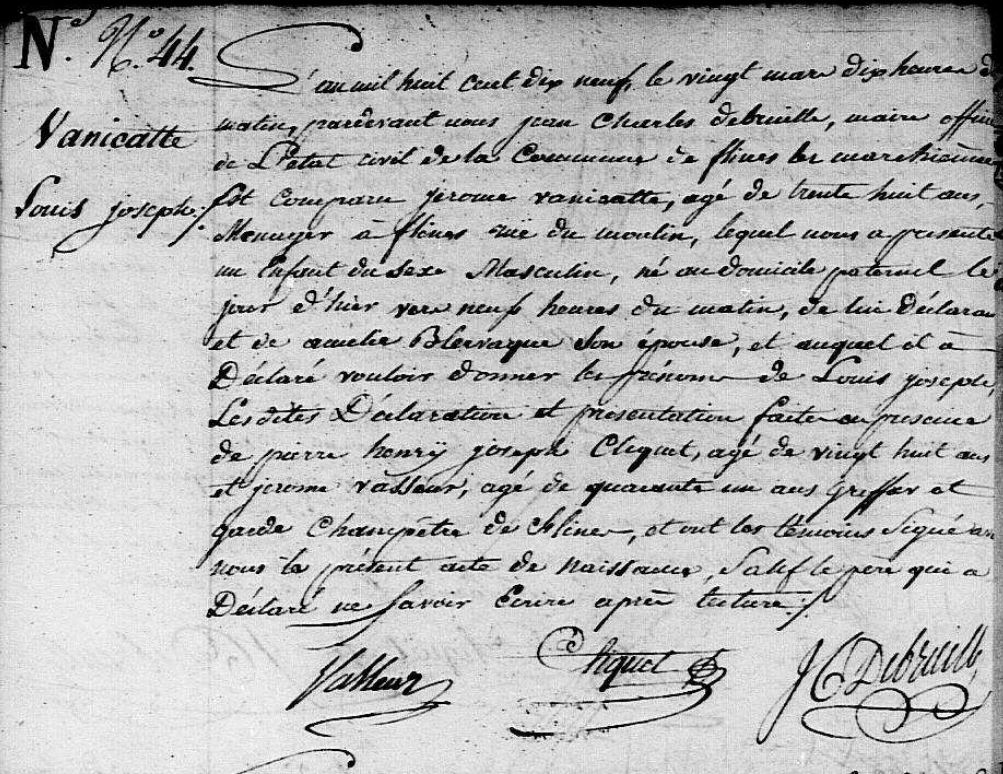 N°. N°. 44.
Vanicatte
Louis joseph ./.
L'an mil huit cent dix neuf, le vingt mars dix heures d
matin, pardevant nous jean Charles debruille, maire offici
de L'Etat civil de la Commune de flines les marchiennes
Est Comparu jerome vanicatte, agé de trente huit ans,
Menager à flines rue du moulin, lequel nous a presenté
un Enfant du Sexe Masculin, né au domicile paternel le
jour d'hier vers neuf heures du matin, de lui Déclaran
et de amelie Blervaque Son épouse, et auquel il a
Déclaré vouloir donner les prénoms de Louis joseph,
Les dites Déclaration et presentation faite en presence
de pierre henry joseph Cliquet, agé de vingt huit ans
et jerome vasseur, agé de quarante un ans Greffier et
garde Champêtre de flines, et ont les témoins Signé av
nous le présent acte de Naissance, Sauf le père qui a
Déclaré ne Savoir Ecrire après lecture ./.
Vasseur Cliquet J C Debruille